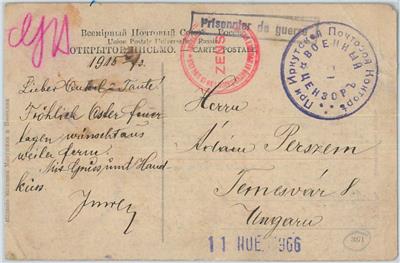 Всемірный Почтовый Союз. Россія.
Union Postale Universelle. Russie.
ОТКРЫТОЕ ПИСЬМО. — CARTE POSTALE
Prisonnier de guerre
ZENS
При Иркутской Почтовой Конторѣ
ВОЕННЫЙ
ЦЕНЗОРЪ
1916
Lieber Onkel - Tante!
Fröhlich Oster feier
tagen wünscht aus
weiter ferne.
Mit Gruss und Hand
kuss
Herrn
Ádám Perszem
Temesvár 8
Ungarn